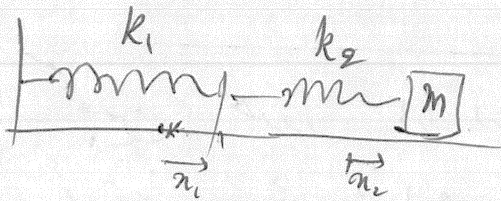 k₁ k₂
m
x₁ x₂